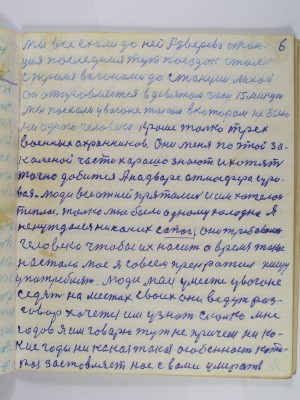 6
мы все ехали до ней Зверева стан-
ция последния тут поездок стоял
с тремя вагонами до станции лихой
он отправляется в девятом часу 15 минут
мы поехали у вагоне таком в котором не было
ни одного человека кроме только трех
военных охранников. Они меня по этой за-
каленой части харашо знают и хотят
точно добится А на дворе атмосфера суро-
вая. люди все от ней прятались и им хотелось
тепла, только мне было одному холодно Я
не нуждался ни каких сапог, они требовали
человека чтобы их носить а время такое
настало мое я совсем прекратил пищу
употреблять. люди мои у месте у вагоне
седят на местах своих они ведут раз-
говор хочется им узнать сколько мне
годов Я им говорю тут не причем ни ка-
кие годы ни какая такая особенность кото-
рая заставляет нас с вами умирать